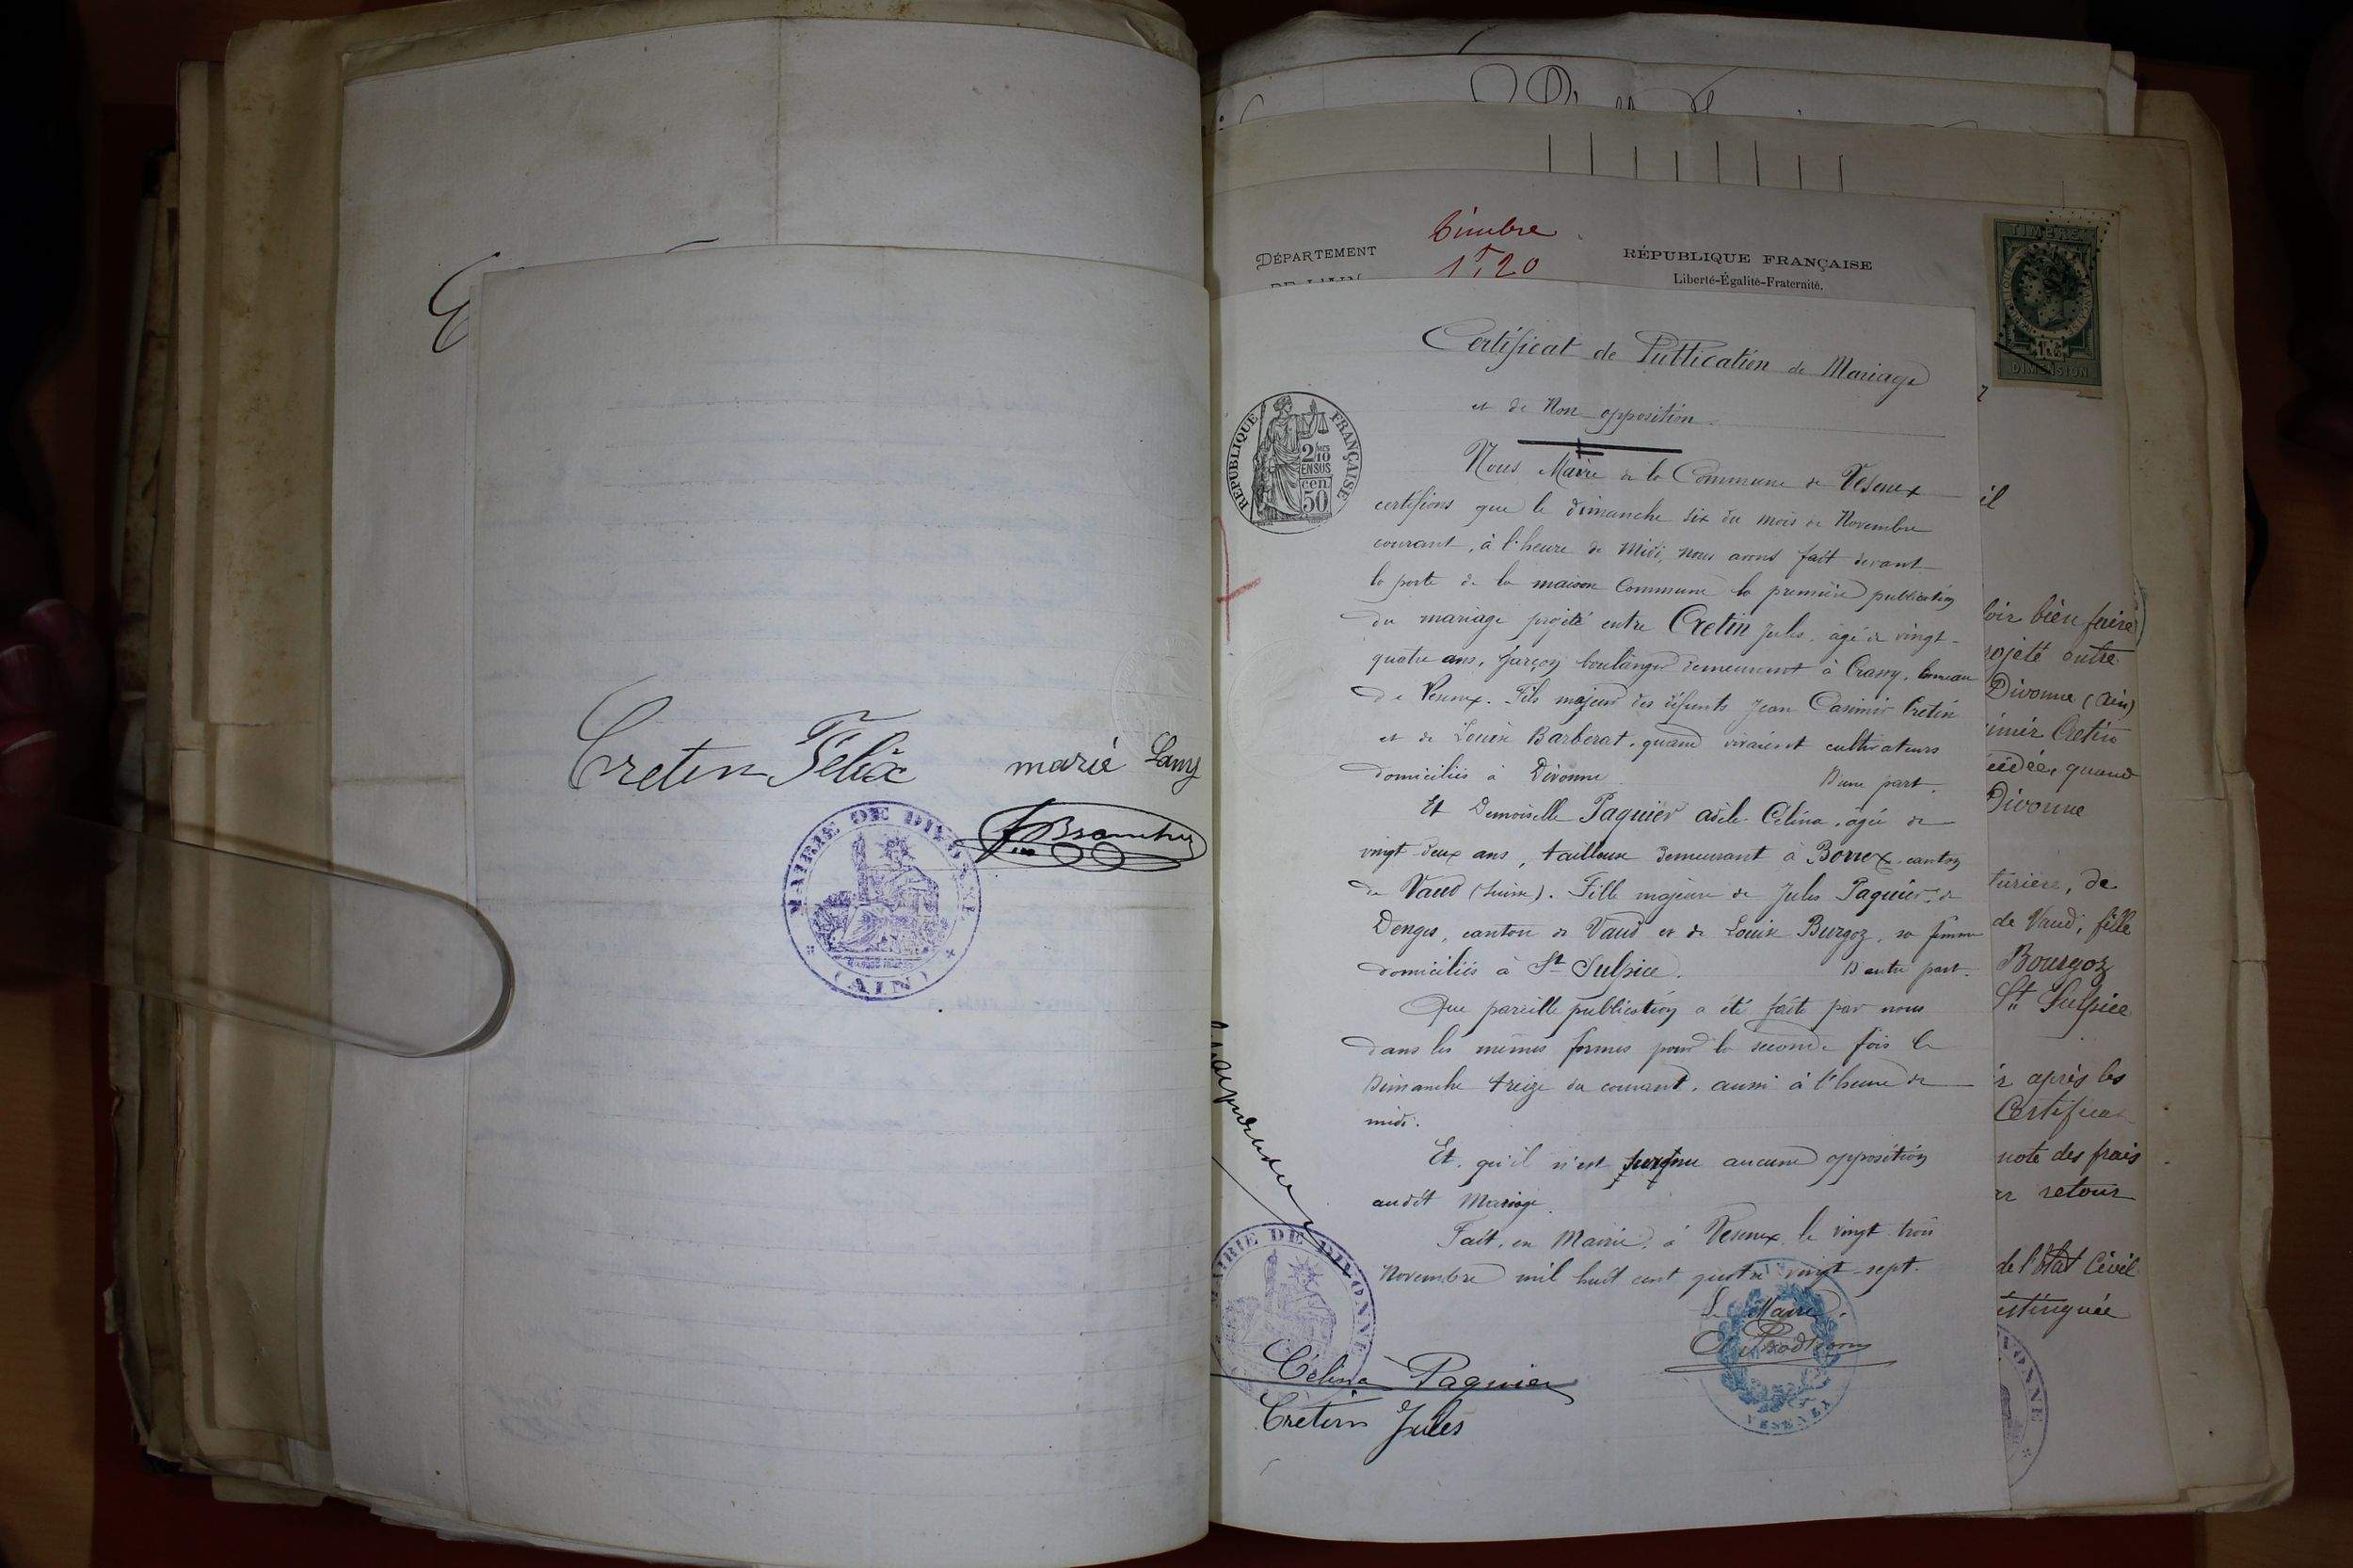 Cretin Félix marié Lamy
MAIRIE DE DIVONNE
(AIN)
Timbre
1f,20
DÉPARTEMENT
RÉPUBLIQUE FRANÇAISE
Liberté-Égalité-Fraternité.
TIMBRE
DIMENSION
Certificat de Publication de Mariage
et de Non-opposition
RÉPUBLIQUE FRANÇAISE
2/10 EN SUS
50 cen.
Nous Maire de la Commune de Vesenex
certifions que le dimanche six du mois de Novembre
courant, à l'heure de Midi, nous avons fait devant
la porte de la maison Commune la première publication
du mariage projeté entre Cretin Jules, âgé de vingt-
quatre ans, garçon boulanger demeurant à Crassy, hameau
de Vesenex. Fils majeur des défunts Jean Casimir Cretin
et de Louise Barberat, quand vivaient cultivateurs
domiciliés à Divonne D'une part.
Et Demoiselle Paquier Adèle Célina, âgée de
vingt-deux ans, tailleuse demeurant à Borex, canton
de Vaud (Suisse). Fille majeure de Jules Paquier, de
Denges, canton de Vaud et de Louise Burgoz, sa femme
domiciliés à St Sulpice. D'autre part.
Que pareille publication a été faite par nous
dans les mêmes formes pour la seconde fois le
Dimanche treize du courant, aussi à l'heure de
midi.
Et, qu'il n'est survenu aucune opposition
audit Mariage.
Fait, en Mairie, à Vesenex, le vingt trois
Novembre mil huit cent quatre vingt-sept.
Le Maire,
MAIRIE DE DIVONNE
Célina Paquier
Cretin Jules
il
loir bien faire
rojeté entre
Divonne (Ain)
imir Cretin
cédés, quand
Divonne
turière, de
de Vaud, fille
Bourgoz
St Sulpice
r après les
Certificat
note des frais
ar retour
de l'Etat Civil
istinguée